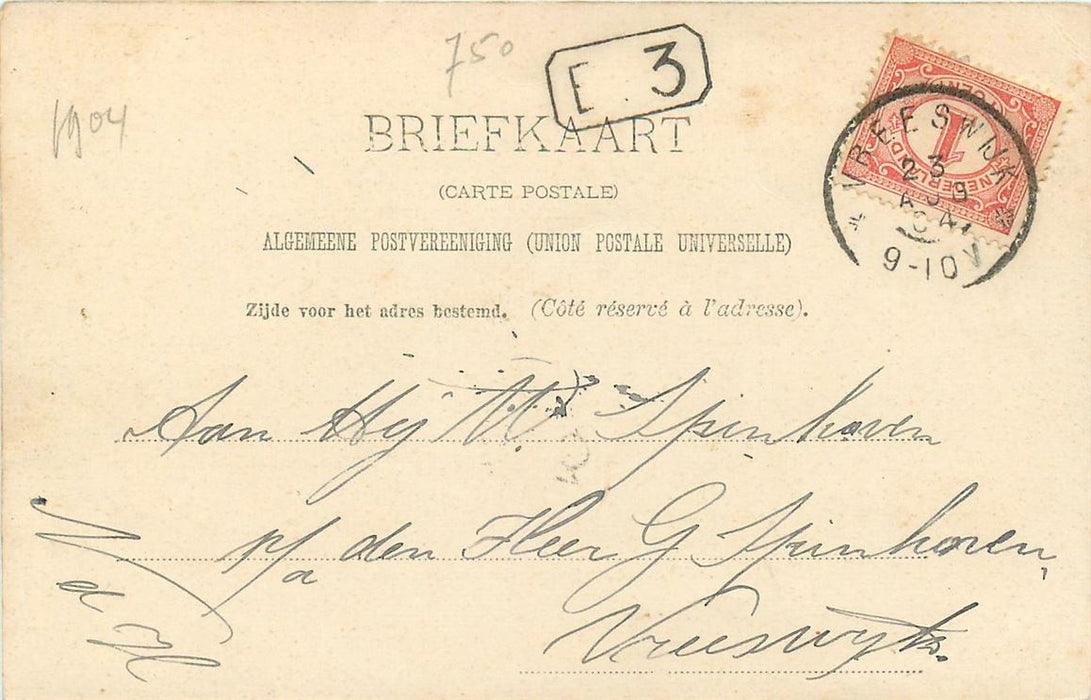 750
E 3
1904
BRIEFKAART
(CARTE POSTALE)
ALGEMEENE POSTVEREENIGING (UNION POSTALE UNIVERSELLE)
Zijde voor het adres bestemd. (Côté réservé à l'adresse).
1 CENT
NEDERLAND
VREESWIJK
3
9-10V
Aan W Spinhoven
p/a den Heer G Spinhoven,
Vreeswyk.